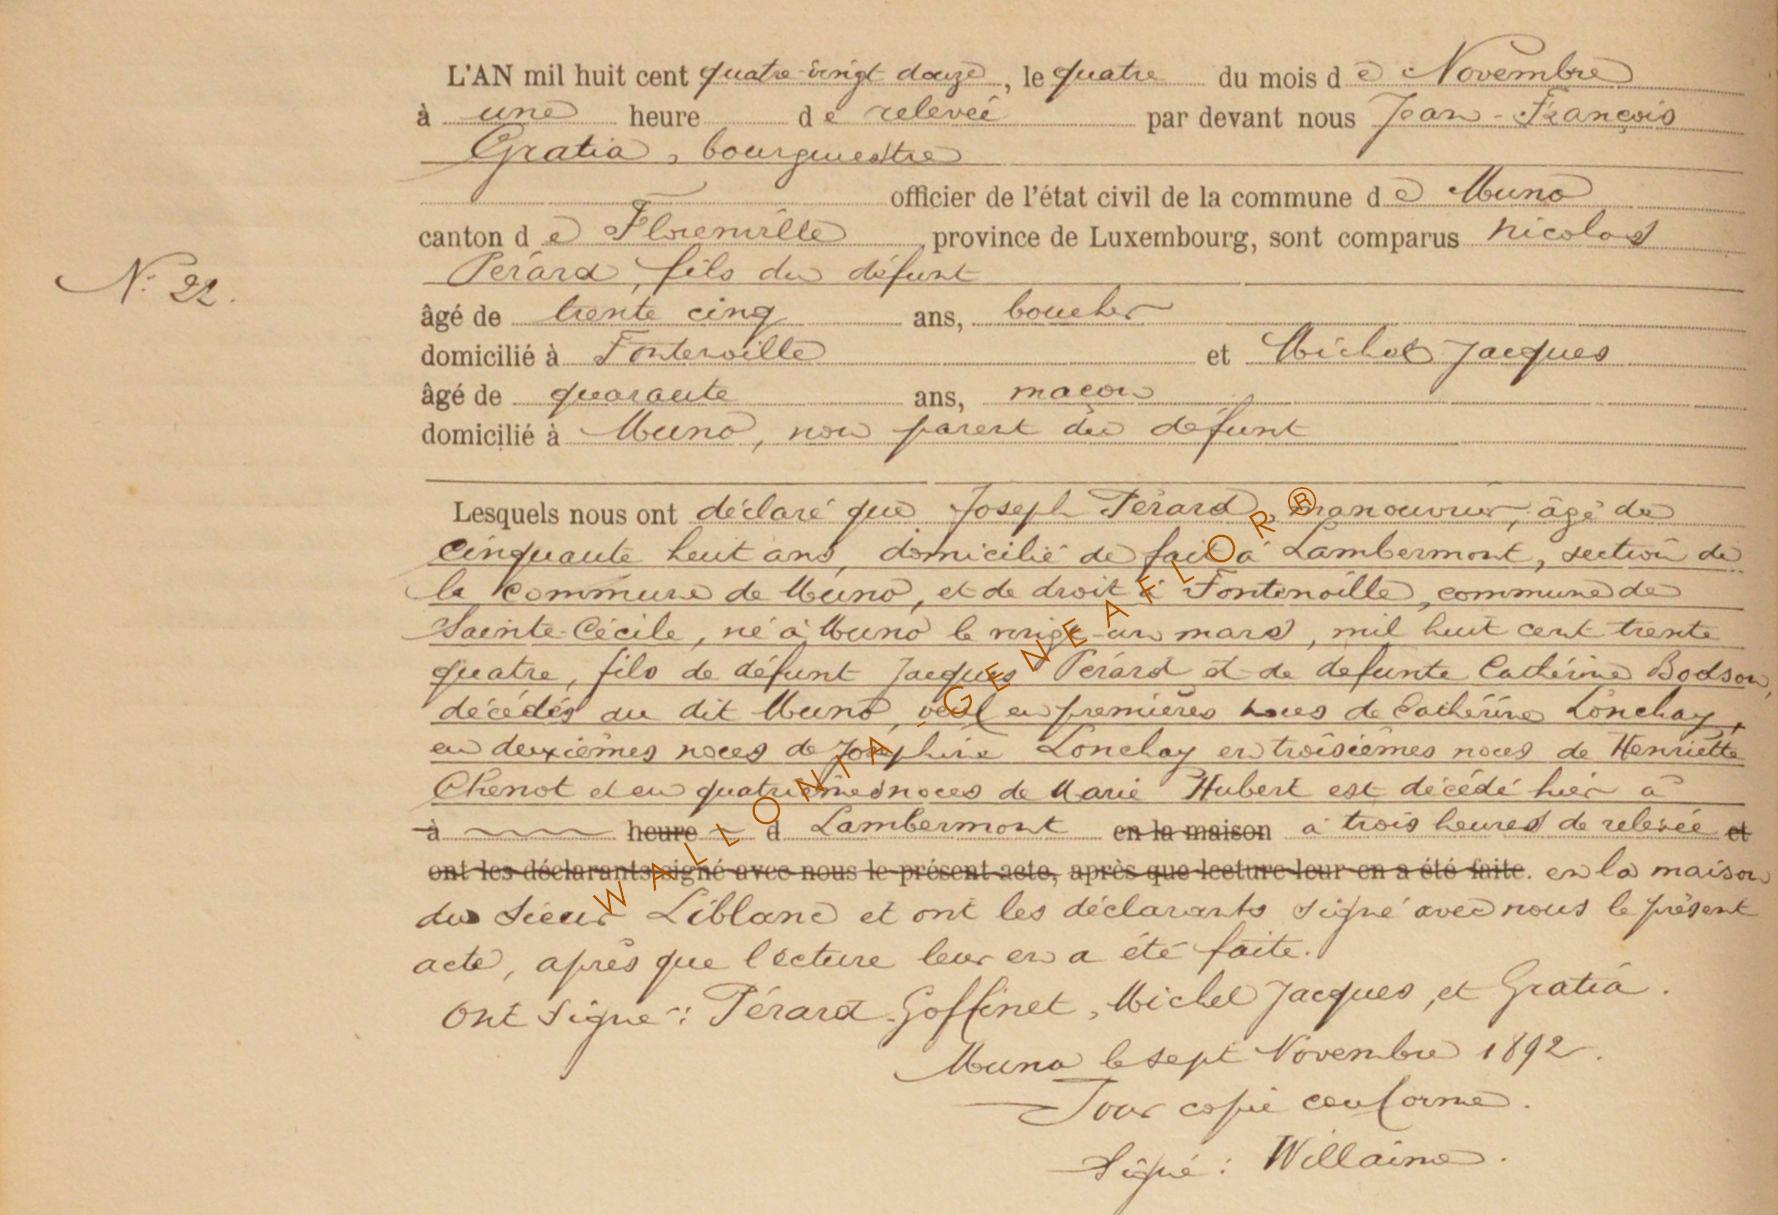 L'AN mil huit cent quatre-vingt douze, le quatre du mois de Novembre
à une heure de relevée par devant nous Jean-François
Gratia, bourgmestre
officier de l'état civil de la commune de Muno
canton de Florenville, province de Luxembourg, sont comparus Nicolas
N° 22.
Pérard, fils du défunt
âgé de trente cinq ans, boucher
domicilié à Fontenoille et Michel Jacques
âgé de quarante ans, maçon
domicilié à Muno, non parent du défunt
Lesquels nous ont déclaré que Joseph Pérard, manouvrier, âgé de
cinquante huit ans, domicilié de fait à Lambermont, section de
la commune de Muno, et de droit à Fontenoille, commune de
Sainte-Cécile, né à Muno le vingt-un mars, mil huit cent trente
quatre, fils de défunt Jacques Pérard et de defunte Cathérine Bodson,
décédés au dit Muno, veuf en premières noces de Cathérine Lonchay,
en deuxièmes noces de Joséphine Lonchay en troisièmes noces de Henriette
Chenot et en quatrièmes noces de Marie Hubert est décédé hier à
à heure d Lambermont en la maison à trois heures de relevée et
ont les déclarants signé avec nous le présent acte, après que lecture leur en a été faite. en la maison
du Sieur Liblanc et ont les déclarants signé avec nous le présent
acte, après que lecture leur en a été faite.
Ont signé : Pérard-Goffinet, Michel Jacques, et Gratia.
Muno le sept Novembre 1892.
Pour copie conforme.
Signé : Willaime.
WALLONIA-GENEAFLOR®